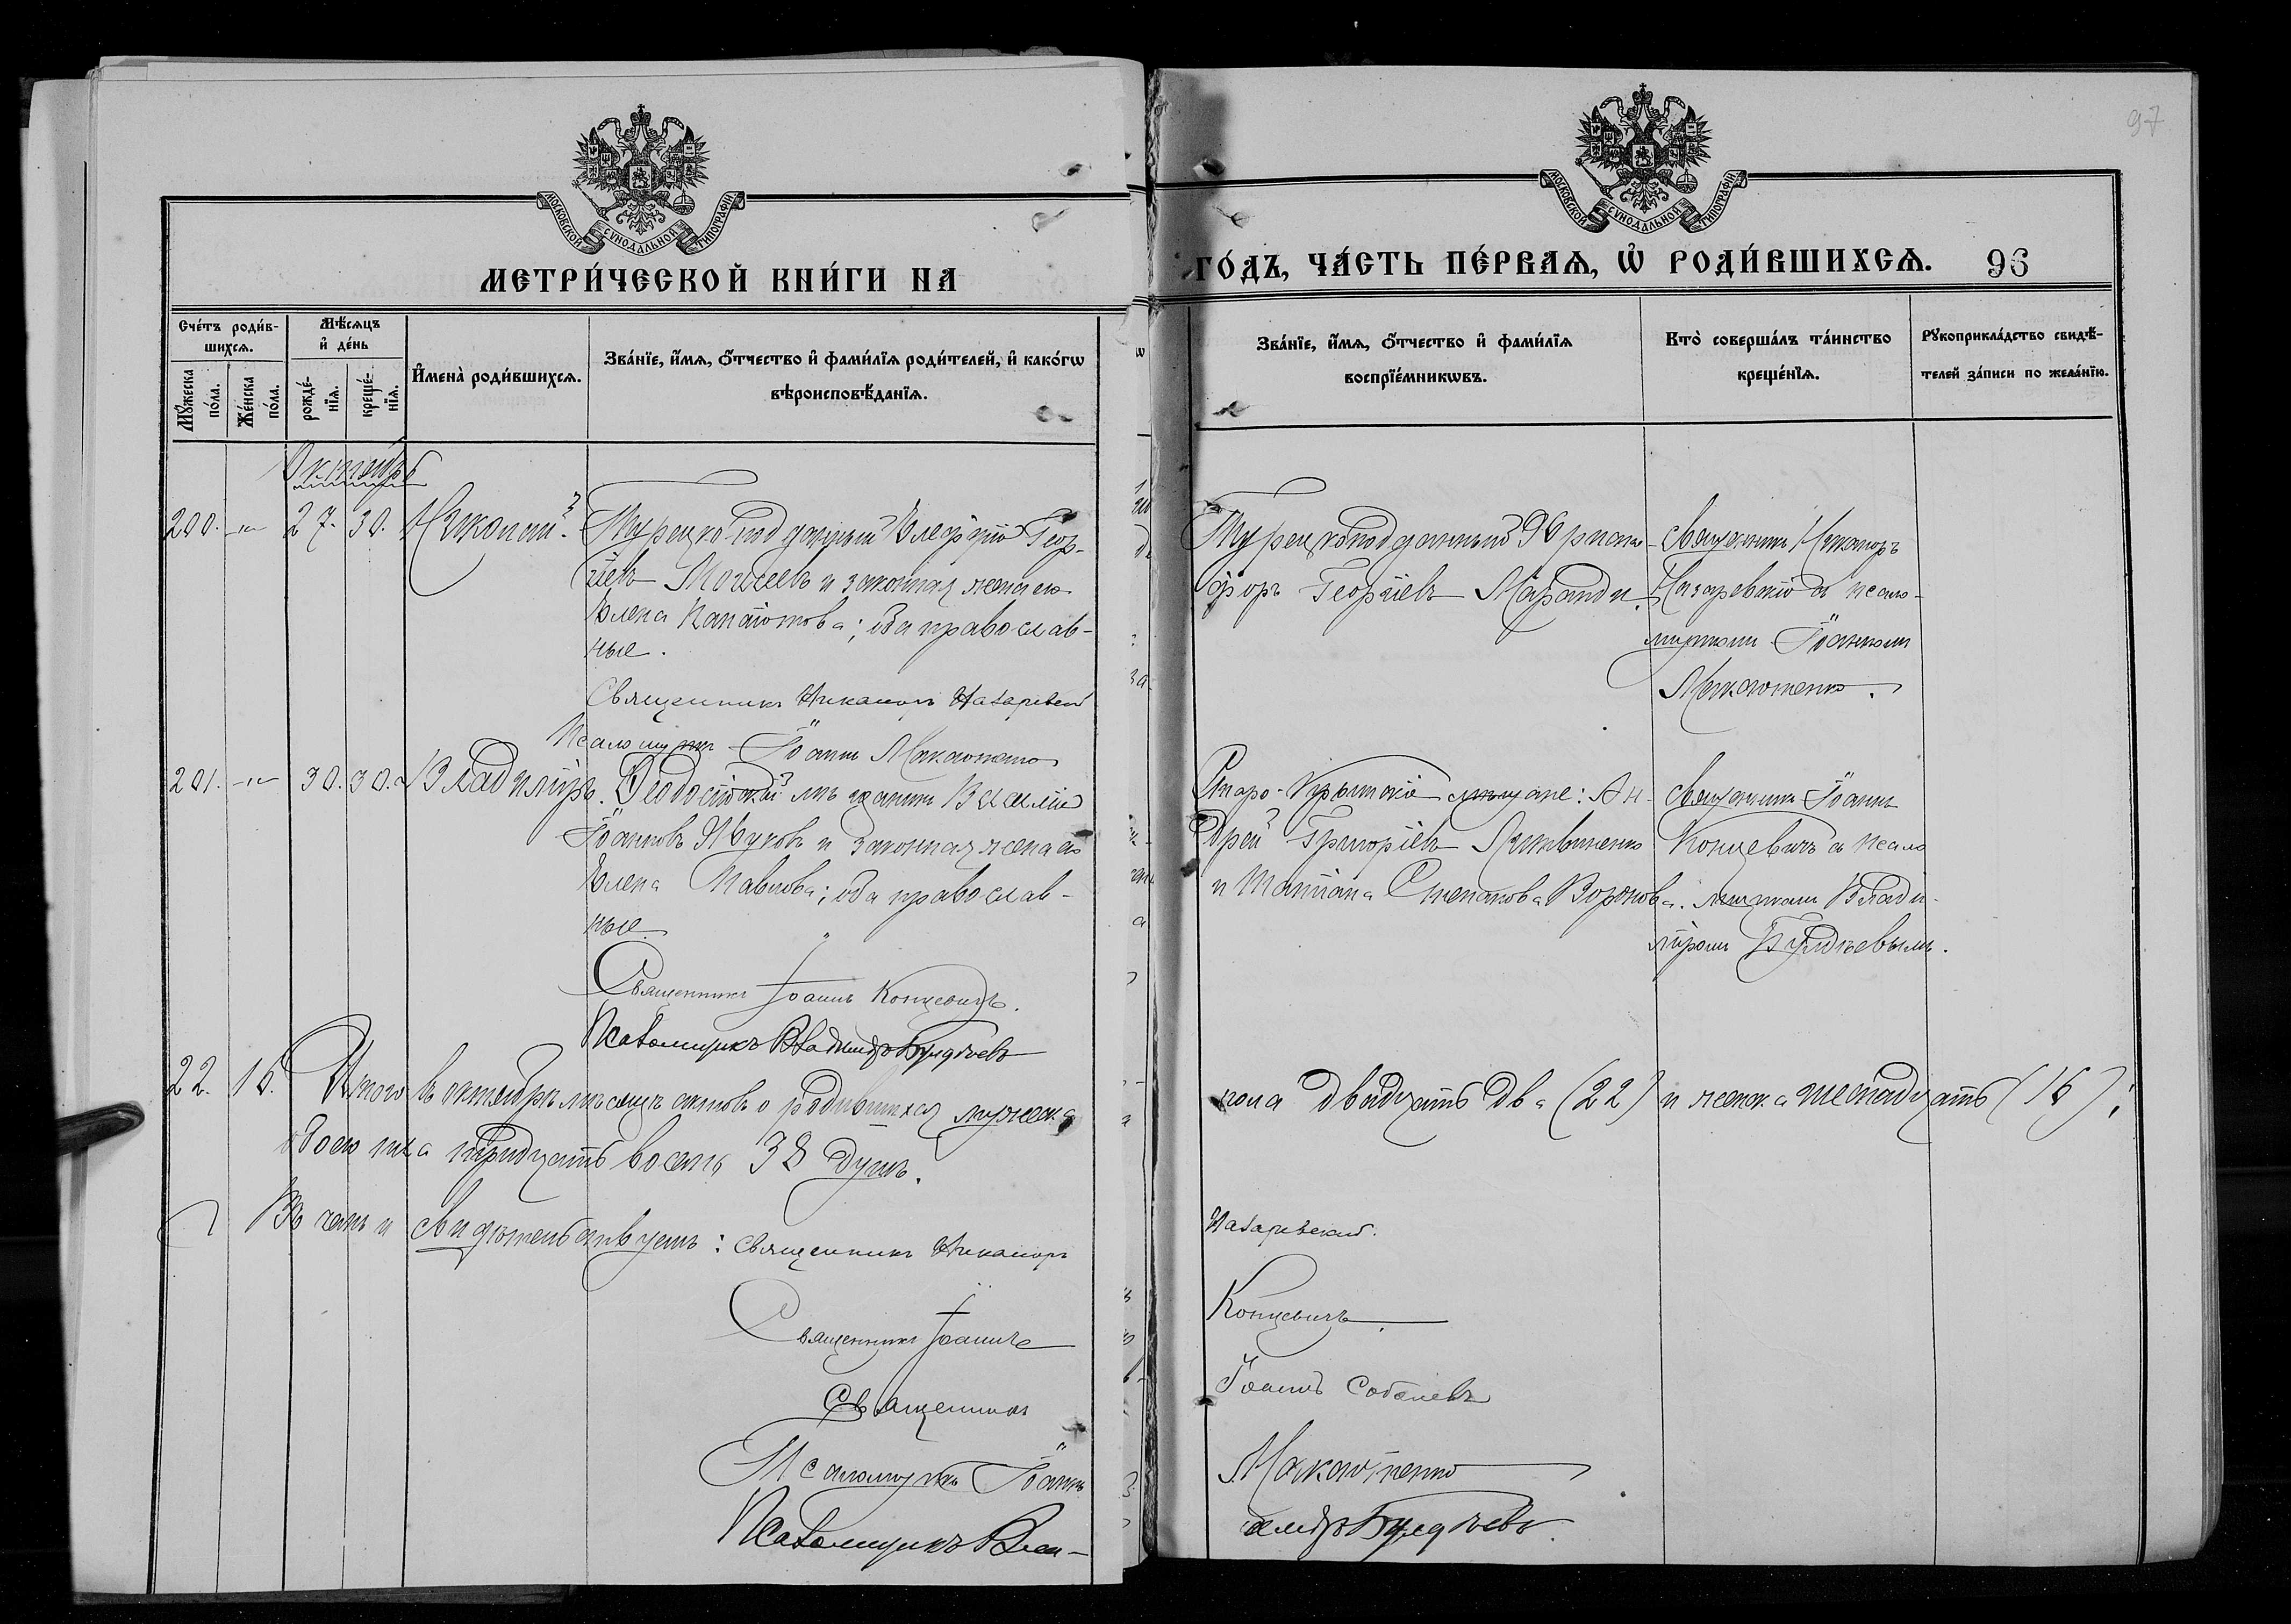 97
МОСКОВСКОЙ СУНОДАЛЬНОЙ ТИПОГРАФІИ
МОСКОВСКОЙ СУНОДАЛЬНОЙ ТИПОГРАФІИ
МЕТРИ́ЧЕСКОЙ КНИ́ГИ НА
ГО́ДЪ, ЧА́СТЬ ПЕ́РВАЯ, Ѡ҆ РОДИ́ВШИХСЯ. 96
Сче́тъ роди́в-
шихся.
Мѣ́сяцъ
и҆ де́нь
Му́жеска
по́ла.
Же́нска
по́ла.
рожде́-
нїя.
креще́-
нїя.
И҆мена̀ роди́вшихся.
Зва́нїе, и҆́мя, ѻ҆́тчество и҆ фами́лїя роди́телей, и҆ како́гѡ
вѣроисповѣ́данїя.
Зва́нїе, и҆́мя, ѻ҆́тчество и҆ фами́лїя
воспрїе́мникѡвъ.
Кто̀ соверша́лъ та́инство
креще́нїя.
Рукоприкла́дство свидѣ́-
телей за́писи по жела́нїю.
Октябрь
200. -"- 27. 30. Николай. Турецко-подданный Георг-
іевъ Моисеевъ и законная жена его
Елена Панаіотова; оба православ-
ные.
Священникъ Никаноръ Назаревскій
Псаломщикъ Іоаннъ Макаютенко
Турецкоподданный
форъ Георгіевъ Маранди.
Священникъ Никаноръ
Назаревскій съ псало-
мщикомъ Іоанномъ
Макаютенко.
201. -"- 30. 30. Владиміръ. Ѳеодосійскій мѣщанинъ Василій
Іоанновъ Жуковъ и законная жена его
Елена Павлова; оба православ-
ные.
Священникъ Іоаннъ Концевичъ.
Псаломщикъ Владиміръ Булдѣевъ
Старо-Крымскіе мѣщане: Ан-
дрей Григоріевъ Литвиненко
и Татіана Степанова Воронова.
Священникъ Іоаннъ
Концевичъ съ псало
мщикомъ Влади-
міромъ Булдѣевымъ.
22. 16. Итого въ октябрѣ мѣсяцѣ актовъ о родившихся мужеска
пола двадцать два (22) и женска шестнадцать (16);
обоего пола тридцать восемь 38 душъ.
Въ чемъ и свидѣтельствуемъ: Священникъ Никаноръ
Назаревскій.
Священникъ Іоаннъ
Концевичъ.
Священникъ
Іоаннъ Соболевъ
Псаломщикъ Іоаннъ
Макаютенко
Псаломщикъ Вла-
диміръ Булдѣевъ.